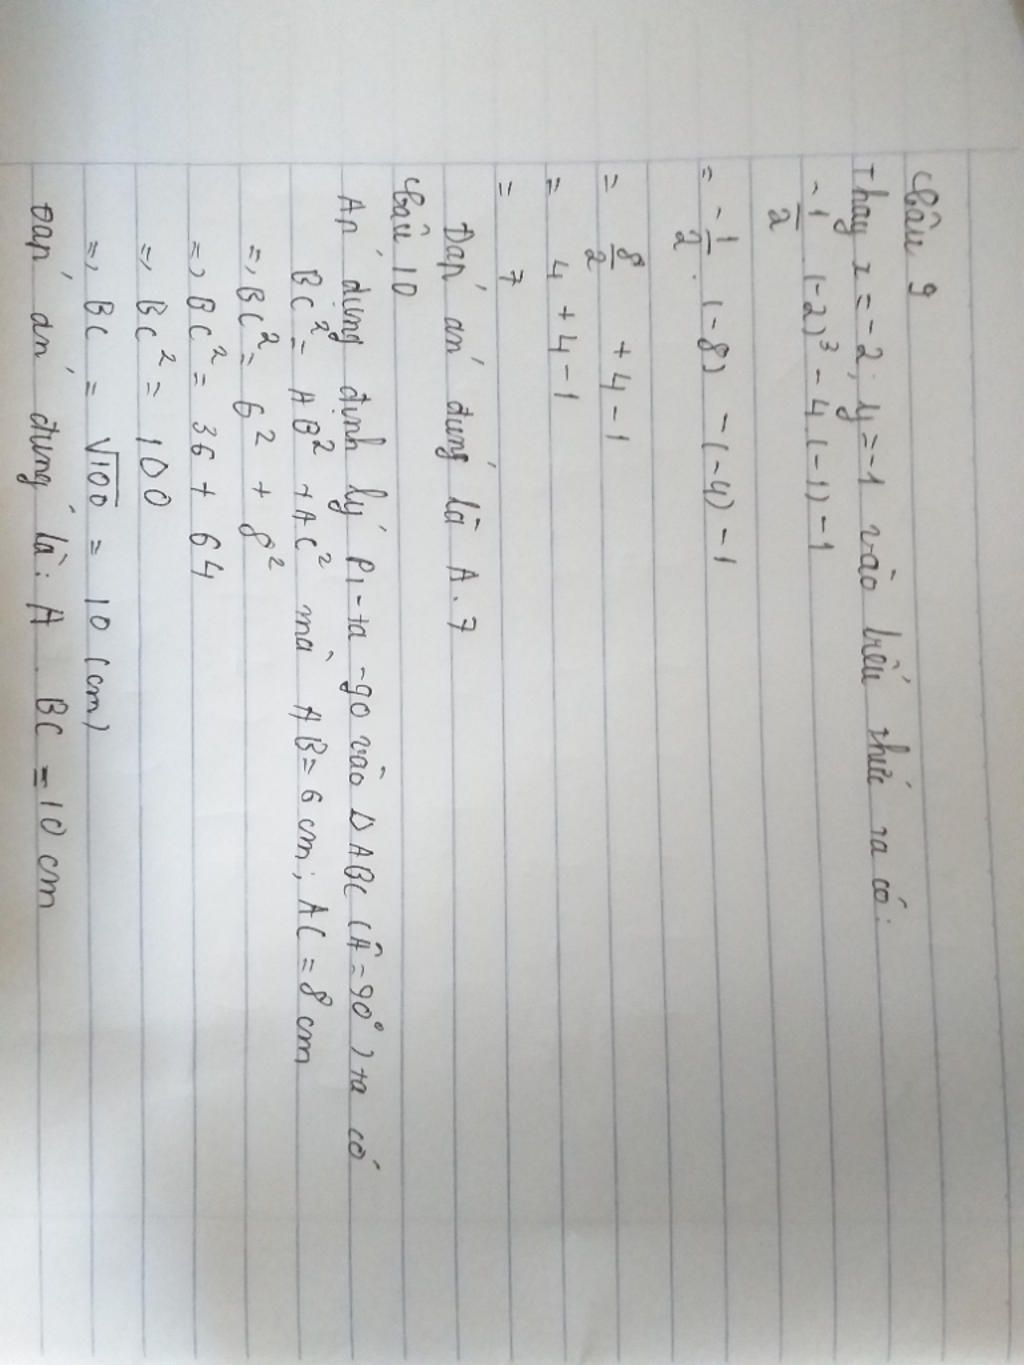 Câu 9
Thay x = -2; y = -1 vào biểu thức ta có:
-1/2 (-2)³ - 4(-1) - 1
= -1/2 . (-8) - (-4) - 1
= 8/2 + 4 - 1
= 4 + 4 - 1
= 7
Đáp án đúng là A. 7
Câu 10
Áp dụng định lý Pi-ta-go vào ΔABC (Â = 90°) ta có
BC² = AB² + AC² mà AB = 6 cm; AC = 8 cm
=> BC² = 6² + 8²
=> BC² = 36 + 64
=> BC² = 100
=> BC = √100 = 10 (cm)
Đáp án đúng là: A. BC = 10 cm